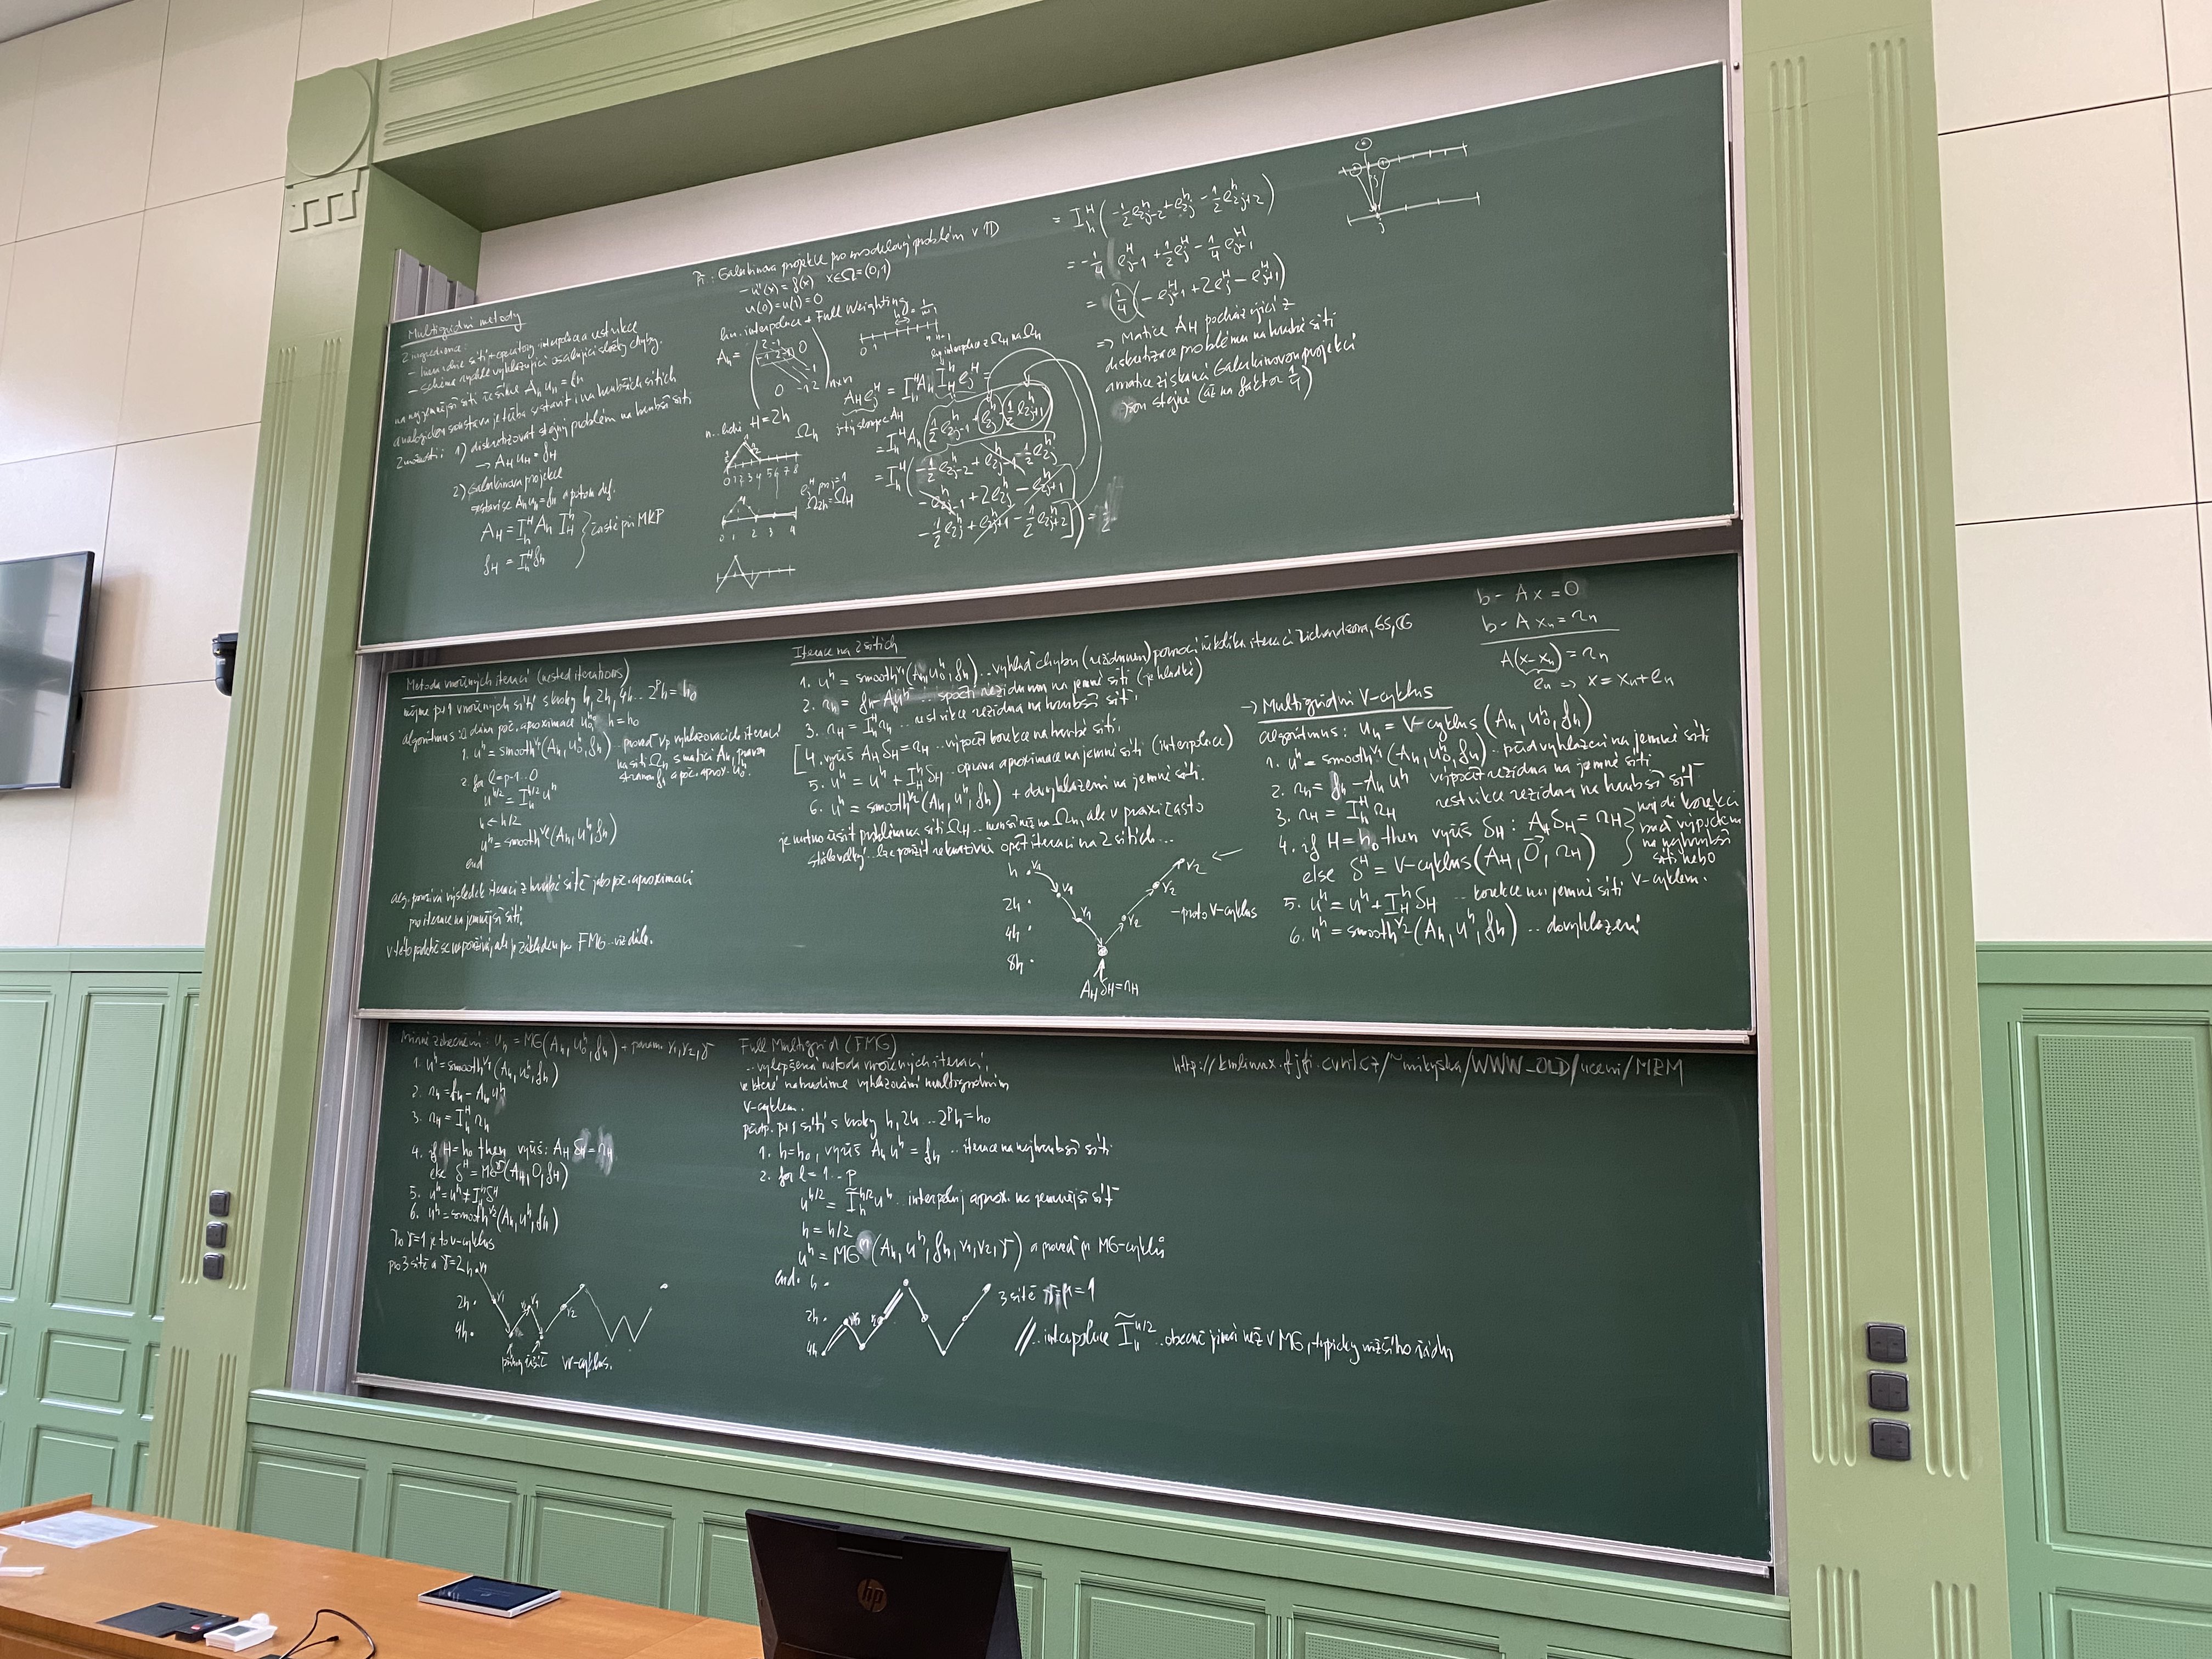 Multigridní metody
2 ingredience:
- hierarchie sítí + operátory interpolace a restrikce
- schéma rychle vyhlazující oscilující složky chyby.
na nejjemnější síti řešíme A_h u_h = f_h
analogickou soustavu je třeba sestavit i na hrubších sítích
2 možnosti: 1) diskretizovat stejný problém na hrubší síti
→ A_H u_H = f_H
2) Galerkinova projekce
sestaví se A_h u_h = f_h a potom def.
A_H = I_h^H A_h I_H^h } časté při MKP
f_H = I_h^H f_h
Př.: Galerkinova projekce pro modelový problém v 1D
-u''(x) = f(x) x∈Ω=(0,1)
u(0)=u(1)=0
lin. interpolace + Full Weighting
A_h =
n.. liché H=2h
Ω_h
0 1 2 3 4 5 6 7 8
Ω_2h = Ω_H
0 1 2 3 4
lin. interpolace z Ω_H na Ω_h
A_H e_j^H = I_h^H A_h I_H^h e_j^H =
j-tý sloupec A_H
= I_h^H A_h (1/2 e_{2j-1}^h + e_{2j}^h + 1/2 e_{2j+1}^h)
= I_h^H (-1/2 e_{2j-2}^h + e_{2j-1}^h - 1/2 e_{2j}^h
- e_{2j-1}^h + 2e_{2j}^h - e_{2j+1}^h
-1/2 e_{2j}^h + e_{2j+1}^h - 1/2 e_{2j+2}^h) =
= I_h^H (-1/2 e_{2j-2}^h + e_{2j}^h - 1/2 e_{2j+2}^h)
= -1/4 e_{j-1}^H + 1/2 e_j^H - 1/4 e_{j+1}^H
= 1/4 (-e_{j-1}^H + 2e_j^H - e_{j+1}^H)
⇒ Matice A_H pocházející z
diskretizace problému na hrubé síti
a matice získaná Galerkinovou projekcí
jsou stejné (až na faktor 1/4)
j
Metoda vnořených iterací (nested iterations)
mějme p+1 vnořených sítí s kroky h, 2h, 4h... 2^p h = h_0
algoritmus: dána poč. aproximace u_0^h, h=h_0
1. u^h = smooth(A_h, u_0^h, f_h) .. proveď ν_p vyhlazovacích iterací
na síti Ω_h s maticí A_h, pravou
stranou f_h a poč. aprox. u_0^h.
2. for l=p-1..0
u^{h/2} = I_h^{h/2} u^h
h ← h/2
u^h = smooth^{ν_l}(A_h, u^h, f_h)
end
alg. používá výsledek iterací z hrubé sítě jako poč. aproximaci
pro iterace na jemnější síti.
v této podobě se nepoužívá, ale je základem pro FMG.. viz dále.
Iterace na 2 sítích
1. u^h = smooth^{ν1}(A_h, u_0^h, f_h) .. vyhlaď chybu (reziduum) pomocí několika iterací Richardsona, GS, CG
2. r_h = f_h - A_h u^h ... spočti reziduum na jemné síti (je hladké)
3. r_H = I_h^H r_h ... restrikce rezidua na hrubší síť.
4. vyřeš A_H δ_H = r_H .. výpočet korekce na hrubé síti.
5. u^h = u^h + I_H^h δ_H .. oprava aproximace na jemné síti (interpolace)
6. u^h = smooth^{ν2}(A_h, u^h, f_h) + dovyhlazení na jemné síti.
je nutno řešit problém na síti Ω_H .. menší než na Ω_h, ale v praxi často
stále velký .. lze použít rekurzivně opět iteraci na 2 sítích...
h
2h
4h
8h
ν1 ν1 ν1 ν2 ν2 ν2
- proto V-cyklus
A_H δ_H = r_H
b - Ax = 0
b - Ax_n = r_n
A(x-x_n) = r_n
e_n ⇒ x = x_n + e_n
→ Multigridní V-cyklus
algoritmus: u_h = V-cyklus(A_h, u_0^h, f_h)
1. u^h = smooth^{ν1}(A_h, u_0^h, f_h) .. předvyhlazení na jemné síti
2. r_h = f_h - A_h u^h výpočet rezidua na jemné síti
3. r_H = I_h^H r_h restrikce rezidua na hrubší síť
4. if H=h_0 then vyřeš δ_H: A_H δ_H = r_H
else δ^H = V-cyklus(A_H, 0, r_H)
} najdi korekci
buď výpočtem
na nejhrubší
síti nebo
V-cyklem.
5. u^h = u^h + I_H^h δ_H .. korekce na jemné síti
6. u^h = smooth^{ν2}(A_h, u^h, f_h) .. dovyhlazení
Mírné zobecnění: u_h = MG(A_h, u_0^h, f_h) + param ν1, ν2, γ
1. u^h = smooth^{ν1}(A_h, u_0^h, f_h)
2. r_h = f_h - A_h u^h
3. r_H = I_h^H r_h
4. if H=h_0 then vyřeš: A_H δ_H = r_H
else δ^H = MG^γ(A_H, 0, f_H)
5. u^h = u^h + I_H^h δ^H
6. u^h = smooth^{ν2}(A_h, u^h, f_h)
Pro γ=1 je to V-cyklus
pro 3 sítě a γ=2
h
2h
4h
ν1 ν2 ν1 ν2
přímý řešič
W-cyklus.
Full Multigrid (FMG)
.. vylepšená metoda vnořených iterací,
ve které nahradíme vyhlazování multigridním
V-cyklem.
předp. p+1 sítí s kroky h, 2h ... 2^p h = h_0
1. h=h_0, vyřeš A_h u^h = f_h .. iterace na nejhrubší síti
2. for l=1..p
u^{h/2} = Ĩ_h^{h/2} u^h .. interpoluj aprox. na jemnější síť
h = h/2
u^h = MG^μ(A_h, u^h, f_h, ν1, ν2, γ) a proveď μ MG-cyklů
end.
h
2h
4h
3 sítě μ=1
// .. interpolace Ĩ_h^{h/2} .. obecně jiná než v MG, typicky vyššího řádu
http://kmlinux.fjfi.cvut.cz/~mikyska/WWW_OLD/uceni/MRM
hp